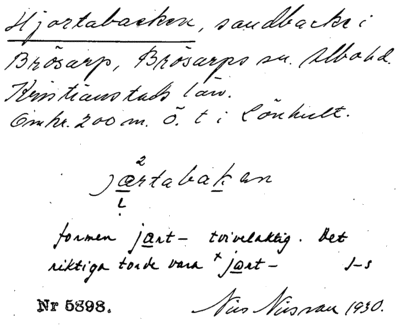 Hjortabacken, sandbacke i
Brösarp, Brösarps sn. Albo hd.
Kristianstads län.
Omkr. 200 m. Ö. t i Lönhult.
2
jærtabakan
formen jært- tvivelaktig. Det
riktiga torde vara *jært- J-s
Nr 5898. Nils Nilsson 1930.